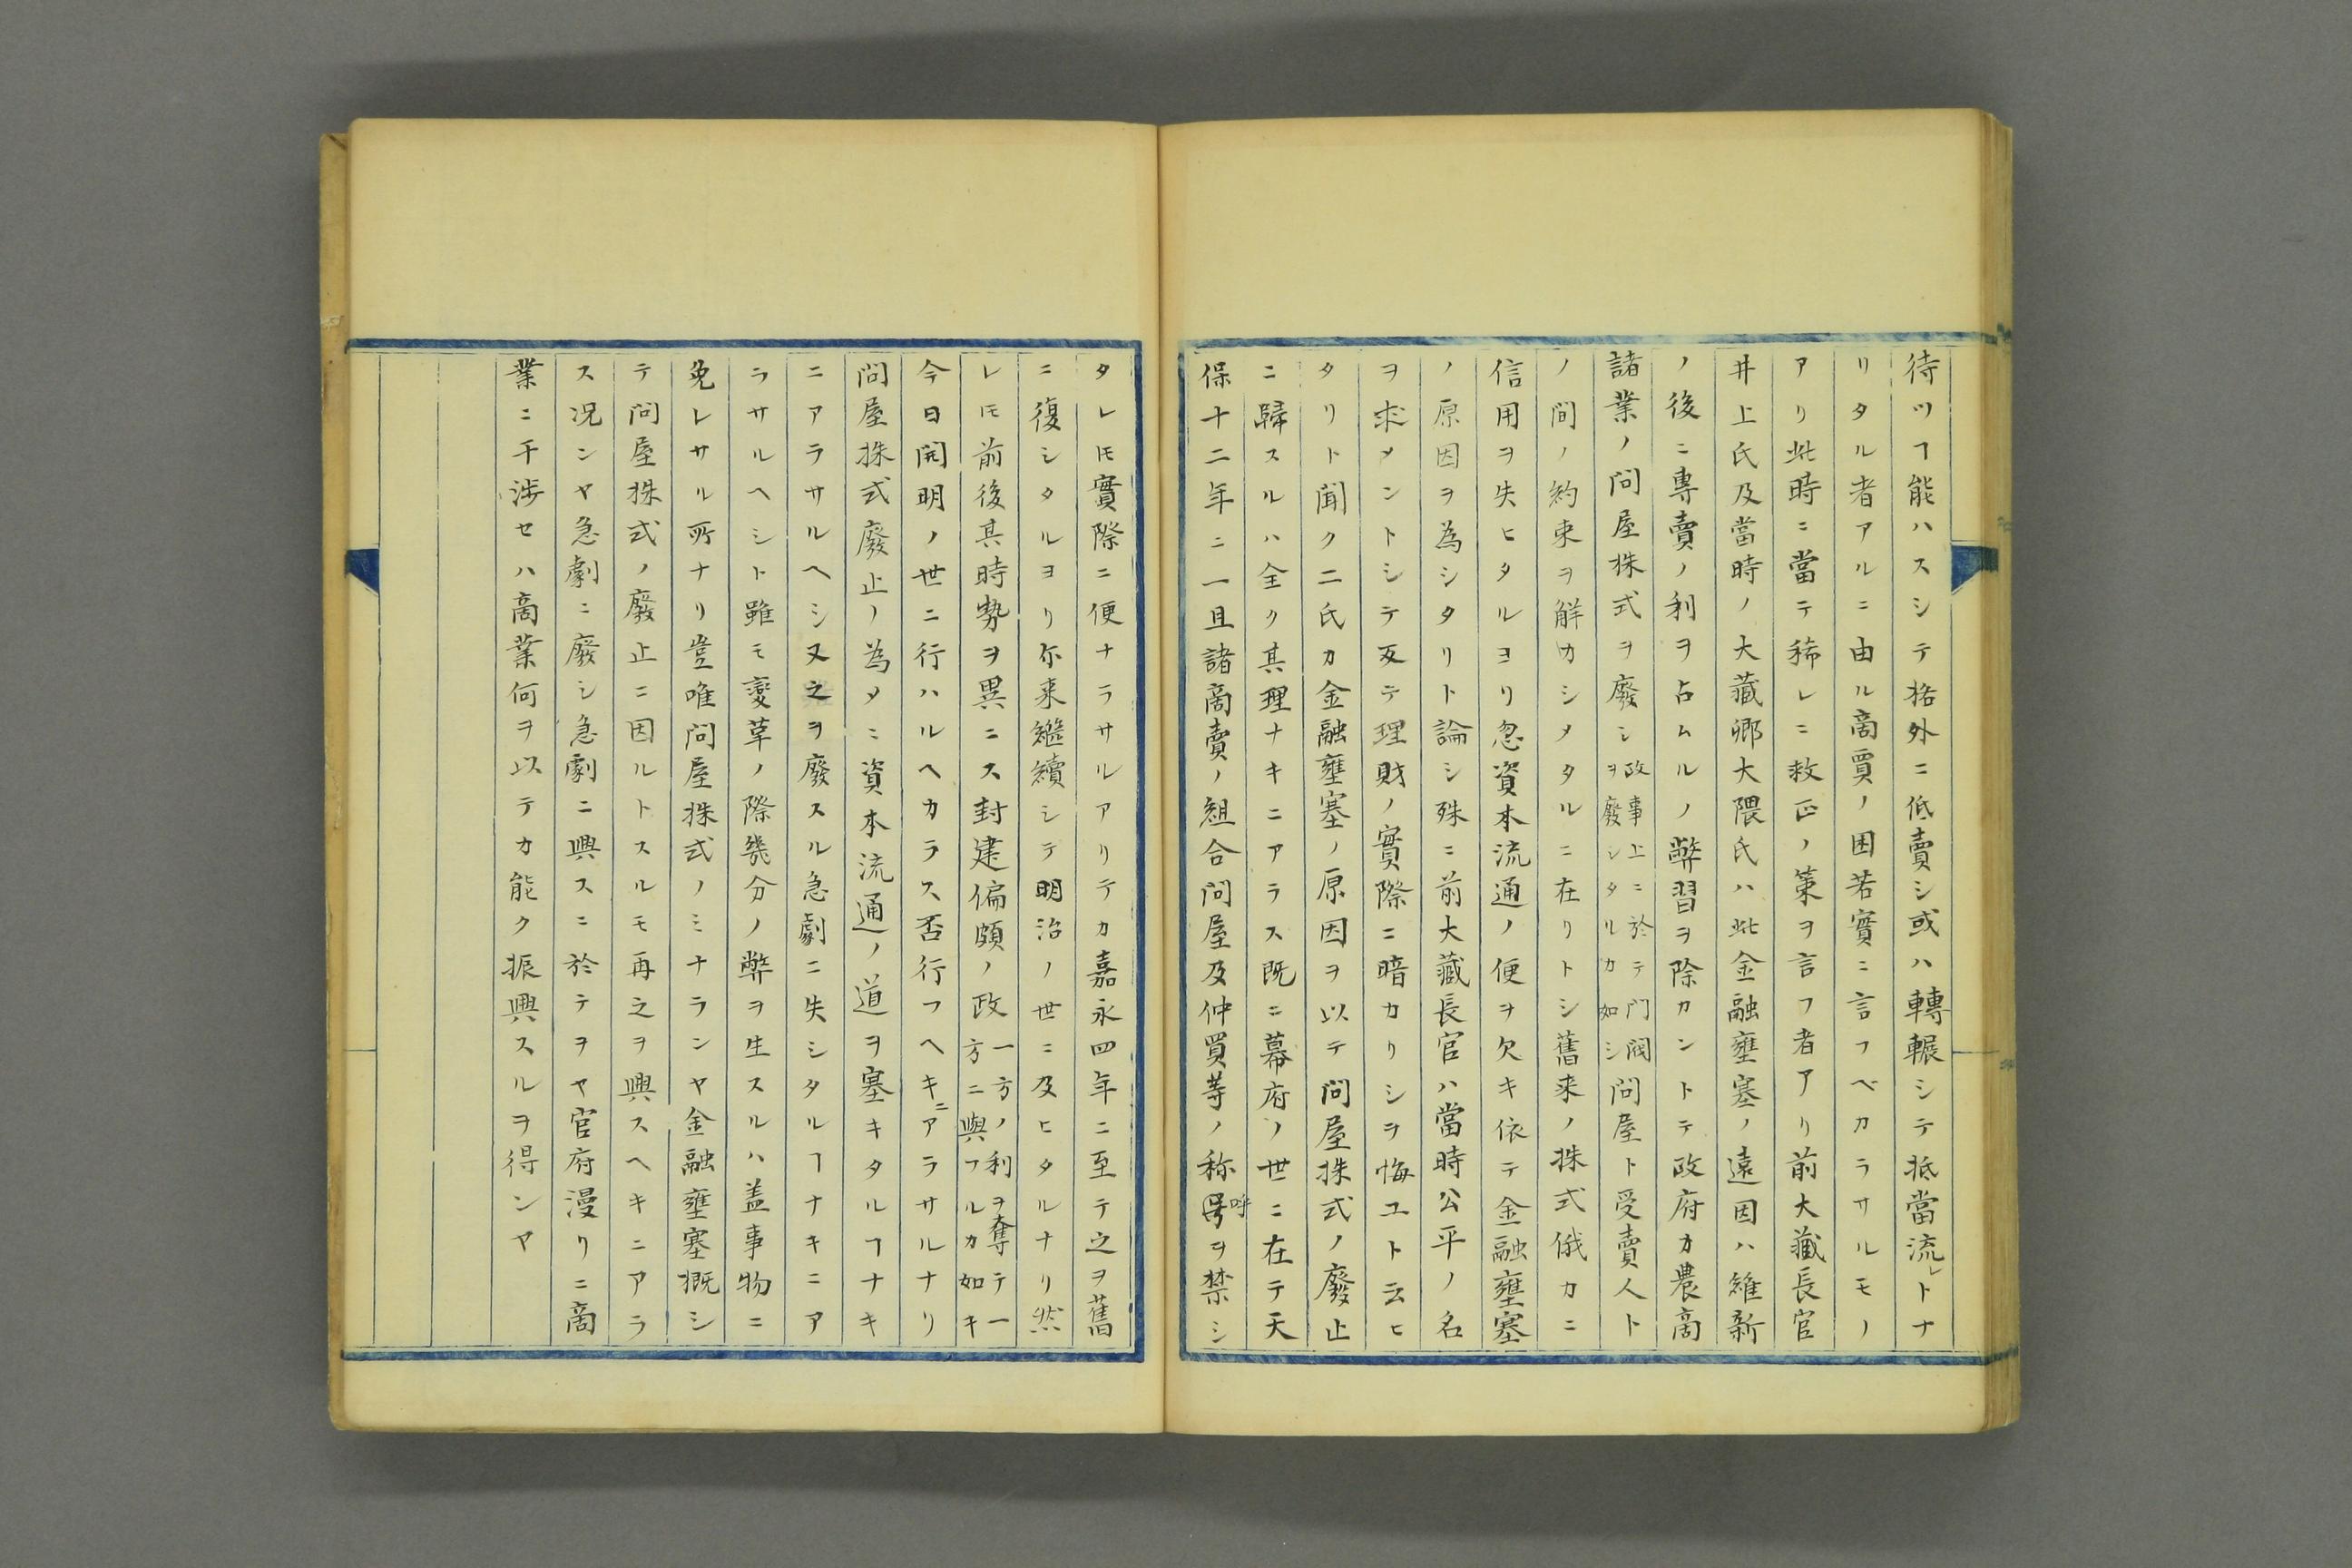 待ツヿ能ハスシテ拓外ニ低賣シ或ハ轉輾シテ抵當流レトナ
リタル者アルニ由ル商賈ノ困苦實ニ言フベカラサルモノ
アリ此時ニ當テ稀レニ救正ノ策ヲ言フ者アリ前大藏長官
井上氏及當時ノ大藏卿大隈氏ハ此金融壅塞ノ遠因ハ維新
ノ後ニ專賣ノ利ヲ占ムルノ弊習ヲ除カントテ政府カ農商
諸業ノ問屋株式ヲ廢シ政事上ニ於テ門閥ヲ廢シタルカ如シ問屋ト受賣人ト
ノ間ノ約束ヲ解カシメタルニ在リトシ舊来ノ株式俄カニ
信用ヲ失ヒタルヨリ忽資本流通ノ便ヲ欠キ依テ金融壅塞
ノ原因ヲ為シタリト論シ殊ニ前大藏長官ハ當時公平ノ名
ヲ求メントシテ反テ理財ノ實際ニ暗カリシヲ悔ユト云ヒ
タリト聞ク二氏カ金融壅塞ノ原因ヲ以テ問屋株式ノ廢止
ニ歸スルハ全ク其理ナキニアラス既ニ幕府ノ世ニ在テ天
保十二年ニ一旦諸商賣ノ組合問屋及仲買等ノ称呼ヲ禁シ
タレ𪜈實際ニ便ナラサルアリテカ嘉永四年ニ至テ之ヲ舊
ニ復シタルヨリ尓来繼續シテ明治ノ世ニ及ヒタルナリ然
レ𪜈前後其時勢ヲ異ニス封建偏頗ノ政一方ノ利ヲ奪テ一方ニ與フルカ如キ
今日開明ノ世ニ行ハルヘカラス否行フヘキニアラサルナリ
問屋株式廢止ノ為メニ資本流通ノ道ヲ塞キタルヿナキ
ニアラサルヘシ又之ヲ廢スル急劇ニ失シタルヿナキニア
ラサルヘシト雖モ變革ノ際幾分ノ弊ヲ生スルハ盖事物ニ
免レサル所ナリ豈唯問屋株式ノミナランヤ金融壅塞概シ
テ問屋株式ノ廢止ニ因ルトスルモ再之ヲ興スヘキニアラ
ス况ンヤ急劇ニ廢シ急劇ニ興スニ於テヲヤ官府漫リニ商
業ニ干渉セハ商業何ヲ以テカ能ク振興スルヲ得ンヤ